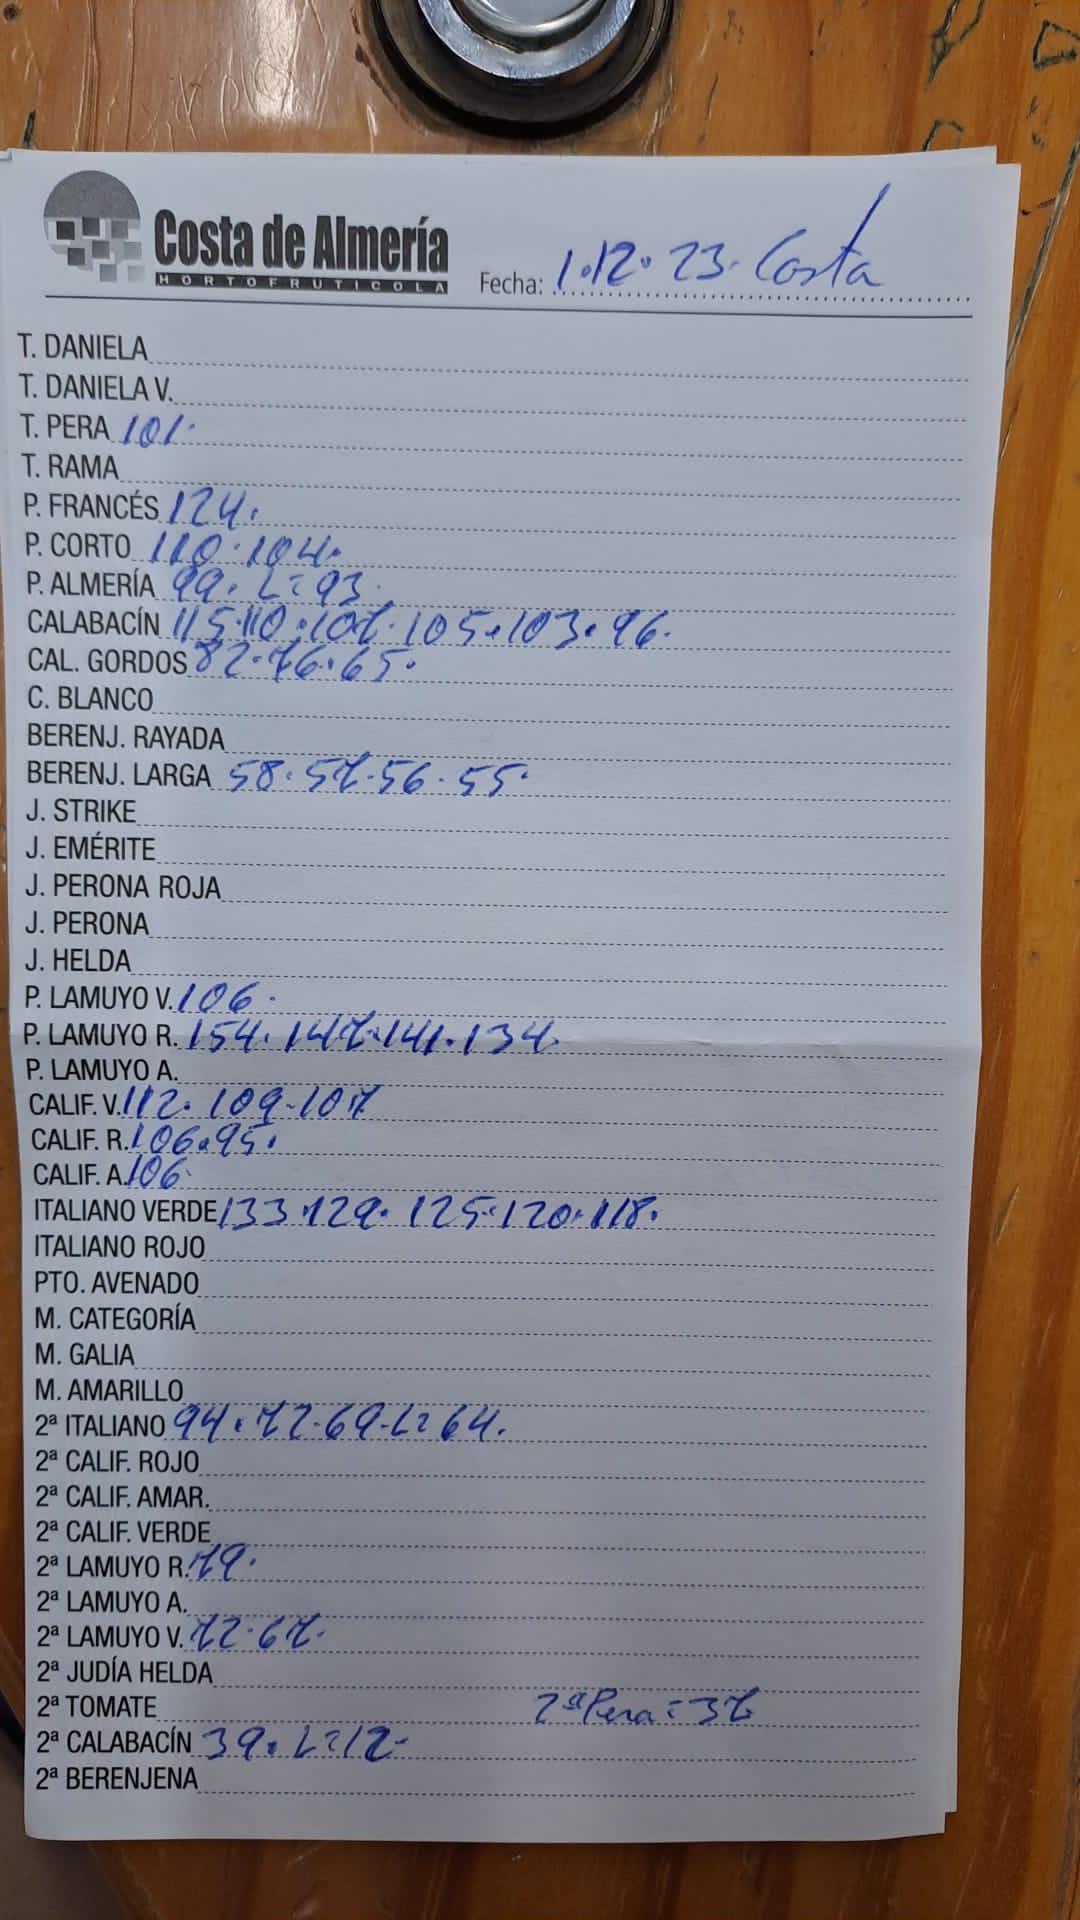 Costa de Almería
HORTOFRUTICOLA
Fecha: 1.12.23. Costa
T. DANIELA
T. DANIELA V.
T. PERA 101.
T. RAMA
P. FRANCÉS 124.
P. CORTO 110.104.
P. ALMERÍA 99. L=93.
CALABACÍN 115.110.107.105.103.96.
CAL. GORDOS 82.76.65.
C. BLANCO
BERENJ. RAYADA
BERENJ. LARGA 58.57.56.55.
J. STRIKE
J. EMÉRITE
J. PERONA ROJA
J. PERONA
J. HELDA
P. LAMUYO V. 106.
P. LAMUYO R. 154.147.141.134.
P. LAMUYO A.
CALIF. V. 112.109.107
CALIF. R. 106.95.
CALIF. A. 106.
ITALIANO VERDE 133.129.125.120.118.
ITALIANO ROJO
PTO. AVENADO
M. CATEGORÍA
M. GALIA
M. AMARILLO
2ª ITALIANO 94.72.69.L=64.
2ª CALIF. ROJO
2ª CALIF. AMAR.
2ª CALIF. VERDE
2ª LAMUYO R. 79.
2ª LAMUYO A.
2ª LAMUYO V. 72.67.
2ª JUDÍA HELDA
2ª TOMATE 2ª Pera=37
2ª CALABACÍN 39. L=12.
2ª BERENJENA